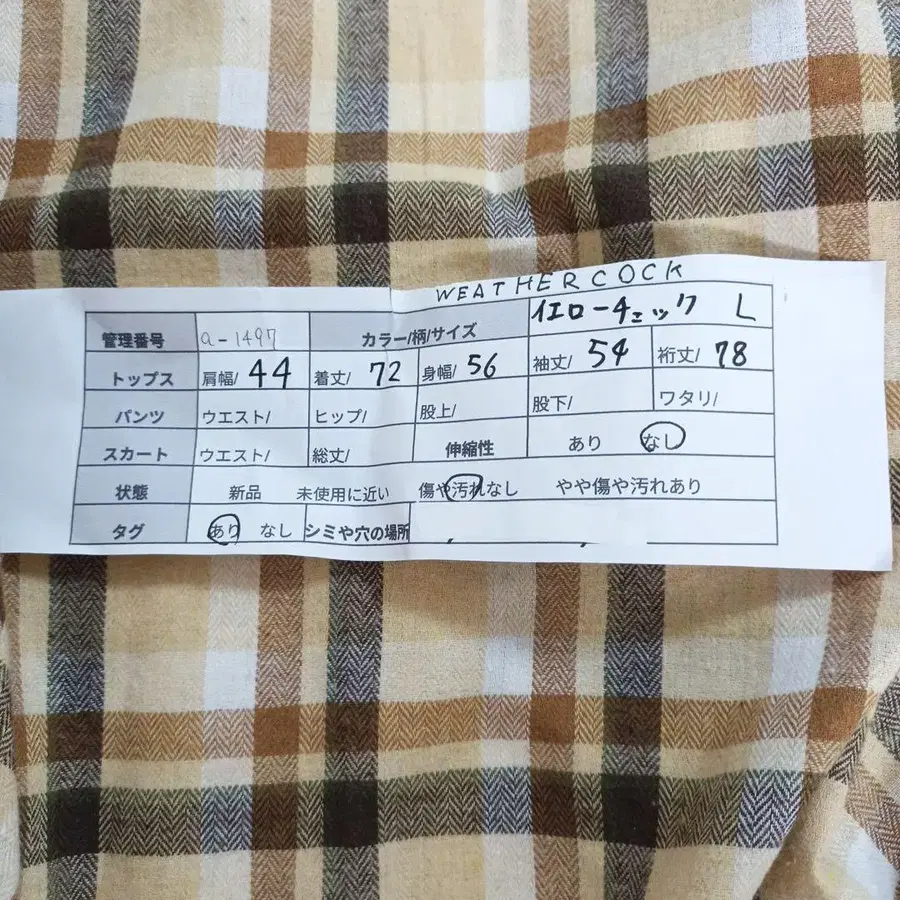 WEATHERCOCK
管理番号 a-1497 カラー/柄/サイズ イエローチェック L
トップス 肩幅/ 44 着丈/ 72 身幅/ 56 袖丈/ 54 裄丈/ 78
パンツ ウエスト/ ヒップ/ 股上/ 股下/ ワタリ/
スカート ウエスト/ 総丈/ 伸縮性 あり なし
状態 新品 未使用に近い 傷や汚れなし やや傷や汚れあり
タグ あり なし シミや穴の場所